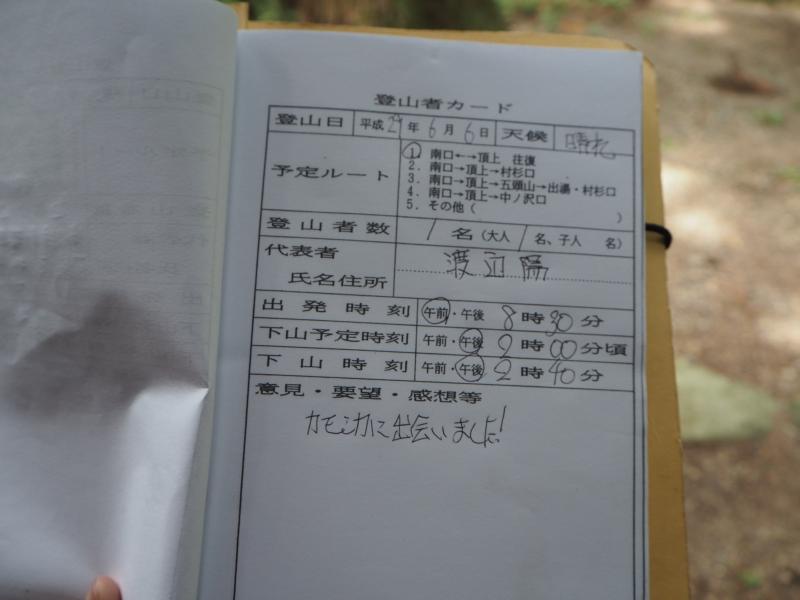 登山者カード
登山日 平成29年6月6日 天候 晴れ
予定ルート
①. 南口←→頂上 往復
2. 南口→頂上→村杉口
3. 南口→頂上→五頭山→出湯・村杉口
4. 南口→頂上→中ノ沢口
5. その他( )
登山者数 1名(大人 1名、子人 名)
代表者 渡辺陽
氏名住所
出発時刻 午前・午後 8時30分
下山予定時刻 午前・午後 2時00分頃
下山時刻 午前・午後 2時40分
意見・要望・感想等
カモシカに出会いました!